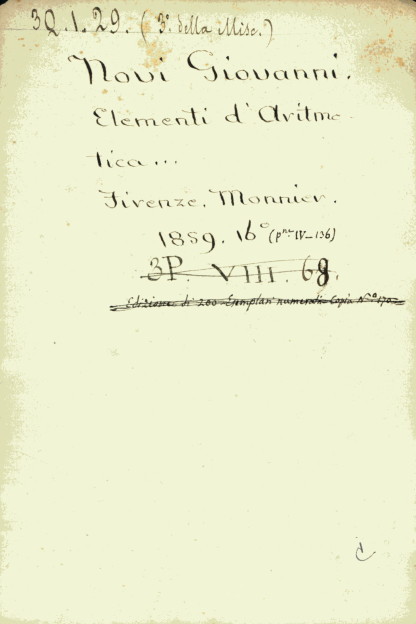 3Q.1.29. (3º della Misc.)
Novi Giovanni.
Elementi d'Aritme
tica...
Firenze. Monnier.
1859. 16º (pne IV–136)
3P. VIII. 68.
Edizione di 200 Esemplari numerati Copia Nº 170